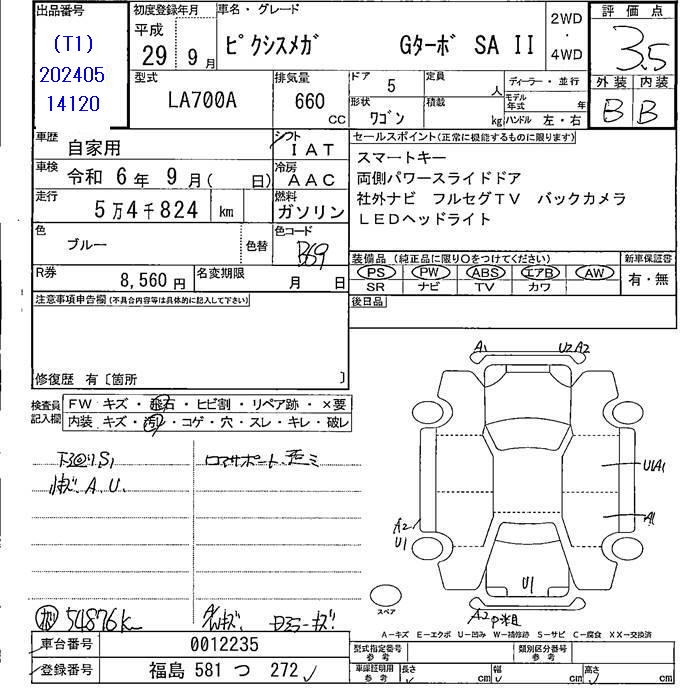 出品番号
(T1)
202405
14120
初度登録年月
平成
29 9 月
車名・グレード
ピクシスメガ Gターボ SA II
2WD
・
4WD
評価点
3.5
外装 内装
B B
型式
LA700A
排気量
660
CC
ドア 5
定員 人
形状 ワゴン
積載 kg
ディーラー・並行
モデル年式 年
ハンドル 左・右
車歴 自家用
シフト IAT
車検 令和 6 年 9 月( 日)
冷房 AAC
走行 5万4千824 km
燃料 ガソリン
色 ブルー
色替
色コード B69
R券 8,560 円
名変期限 月 日
セールスポイント(正常に機能するものに限ります)
スマートキー
両側パワースライドドア
社外ナビ フルセグTV バックカメラ
LEDヘッドライト
装備品 (純正品に限り○をつけてください)
新車保証書
PS PW ABS エアB AW
SR ナビ TV カワ
有・無
後日品
注意事項申告欄(不具合内容等は具体的に記入して下さい)
修復歴 有〔箇所 〕
検査員記入欄
FW キズ・飛石・ヒビ割・リペア跡・×要
内装 キズ・汚れ・コゲ・穴・スレ・キレ・破レ
A1 U2 A2
U1A1
A1
A2
U1
U1
A2
スペア
54876k
A-キズ E-エクボ U-凹み W-補修跡 S-サビ C-腐食 XX-交換済
車台番号 0012235
登録番号 福島 581 つ 272
型式指定番号 参考
類別区分番号 参考
車庫証明用 参考
長さ cm 幅 cm 高さ cm